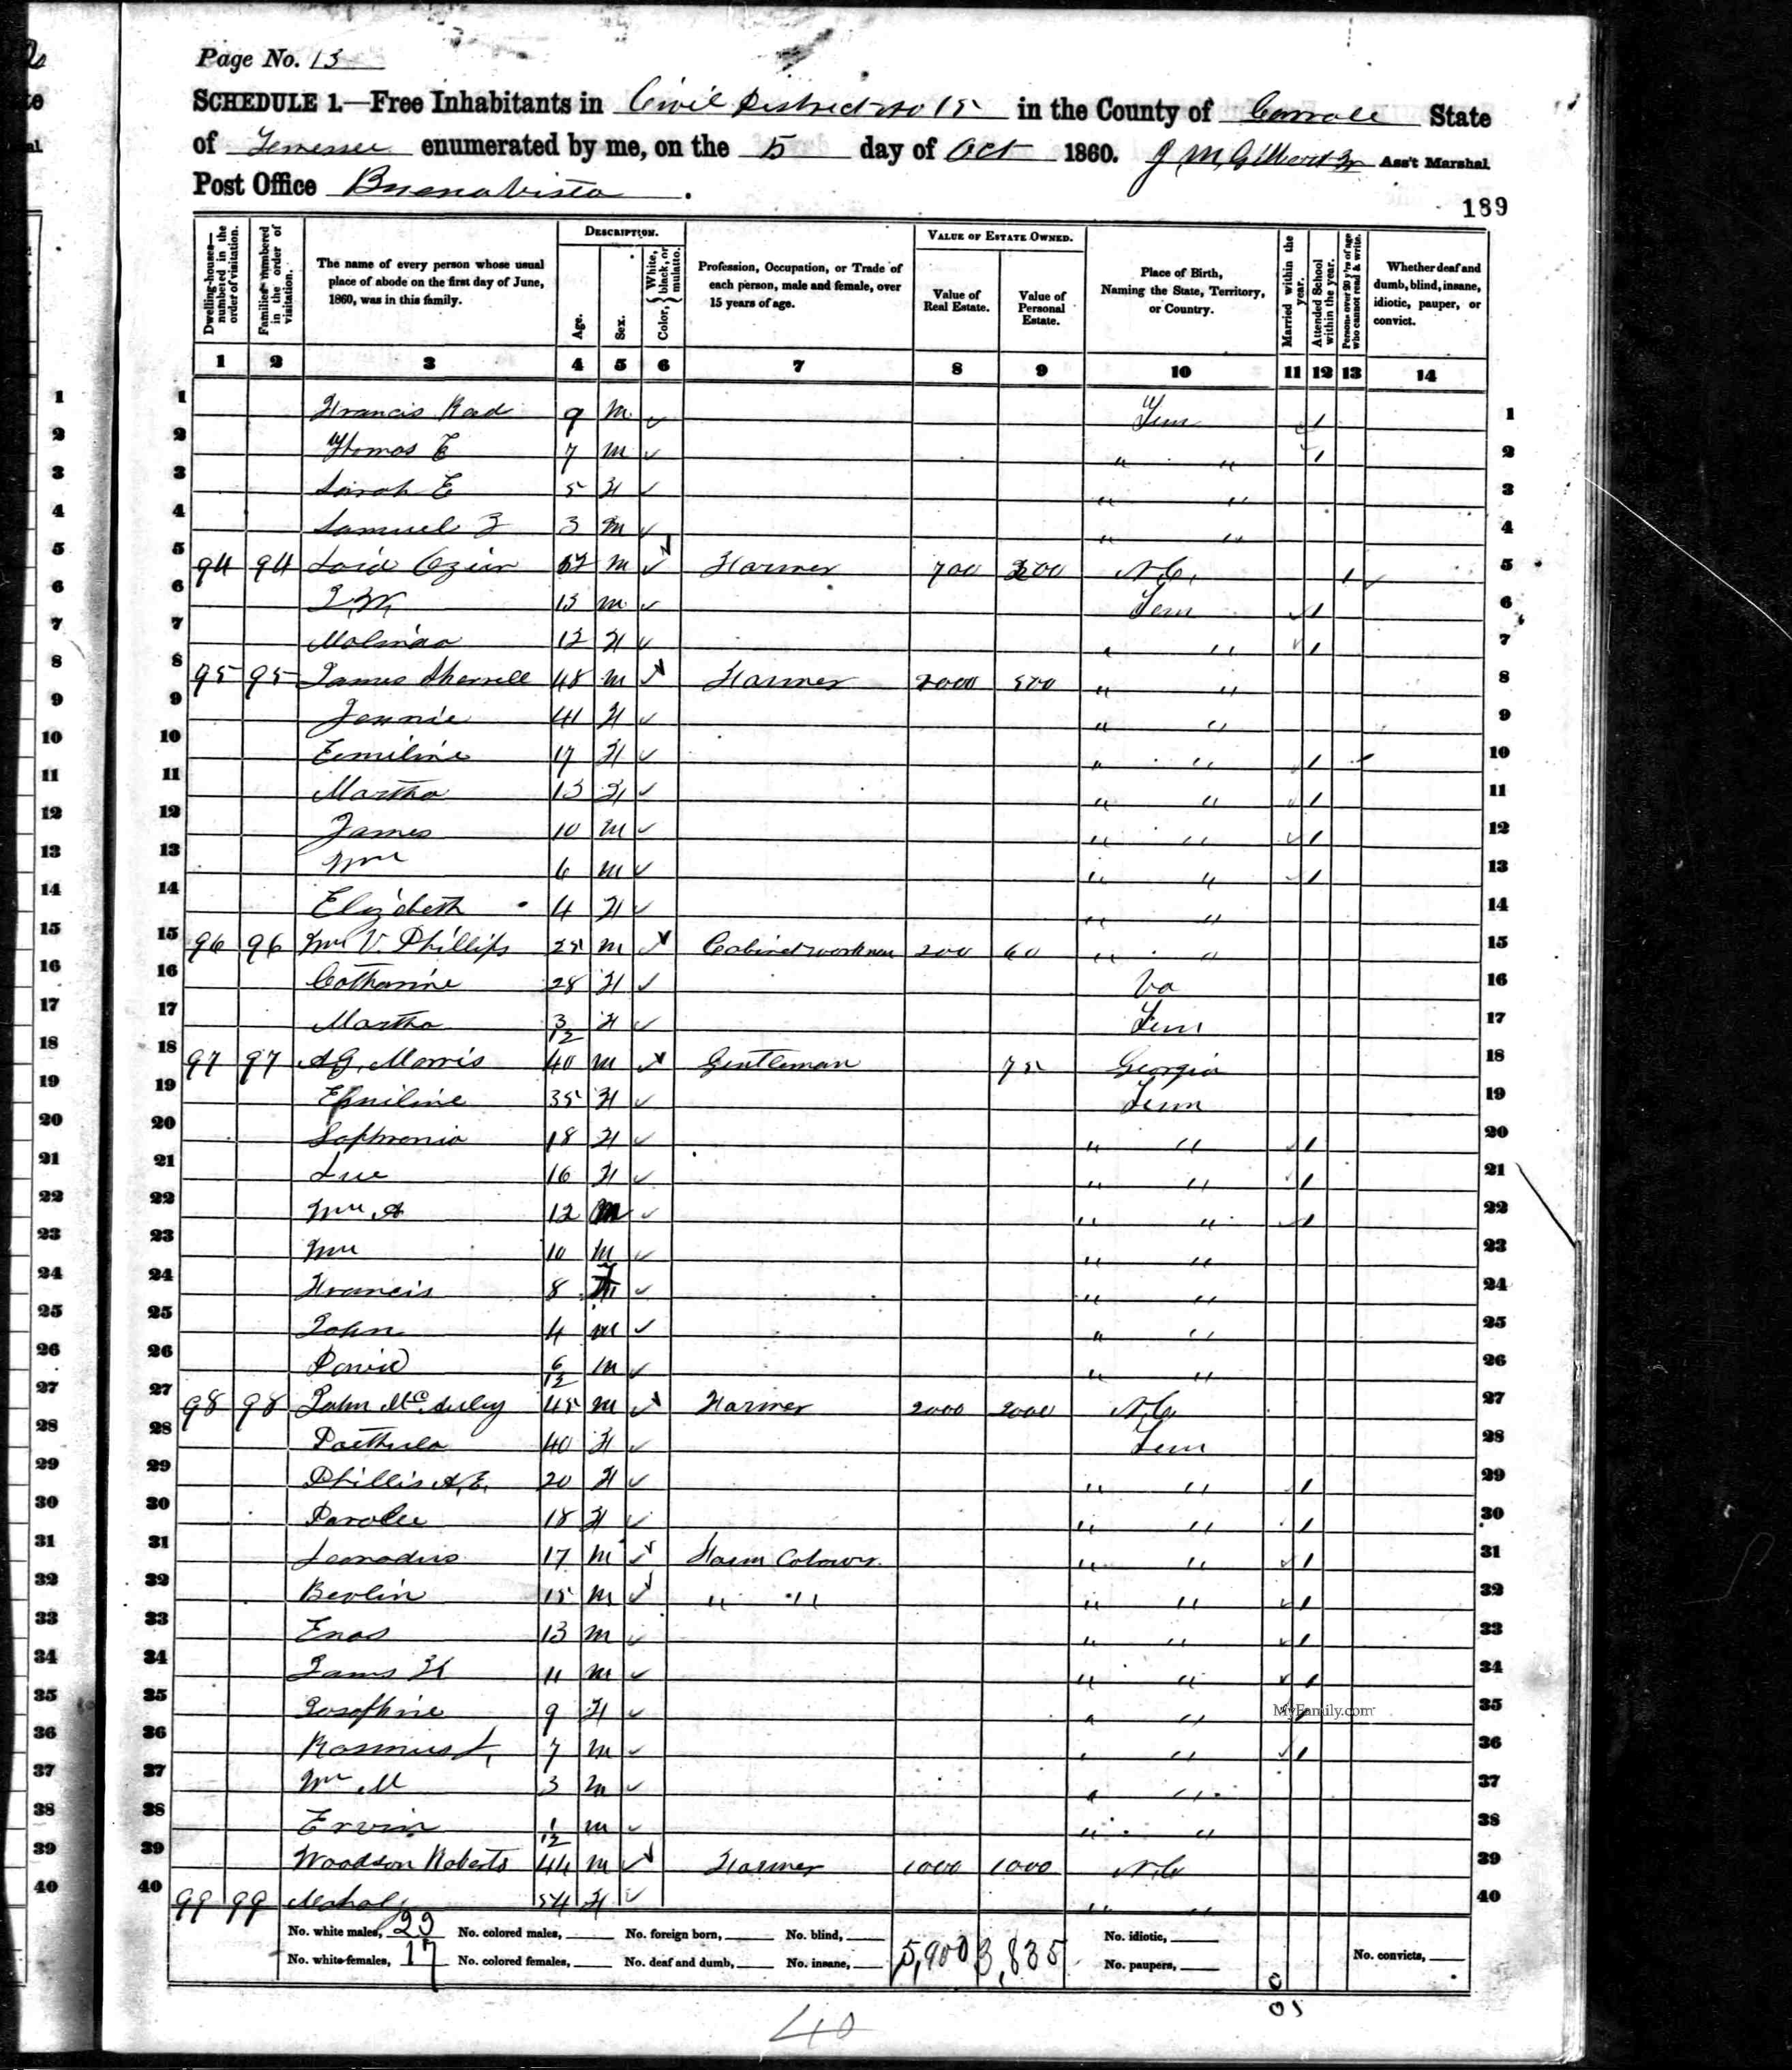 Page No. 13
SCHEDULE 1.—Free Inhabitants in Civil District No 15 in the County of Carroll State
of Tennessee enumerated by me, on the 5 day of Oct 1860. J M Gilbert Ass't Marshal
Post Office Buenavista.
189
Dwelling-houses—numbered in the order of visitation.
Families numbered in the order of visitation.
The name of every person whose usual place of abode on the first day of June, 1860, was in this family.
DESCRIPTION.
Age.
Sex.
Color, White, black, or mulatto.
Profession, Occupation, or Trade of each person, male and female, over 15 years of age.
VALUE OF ESTATE OWNED.
Value of Real Estate.
Value of Personal Estate.
Place of Birth, Naming the State, Territory, or Country.
Married within the year.
Attended School within the year.
Persons over 20 y'rs of age who cannot read & write.
Whether deaf and dumb, blind, insane, idiotic, pauper, or convict.
1 2 3 4 5 6 7 8 9 10 11 12 13 14
1 Francis Rad 9 M ✓ Tenn ✓ 1 1
2 Thomas E 7 M ✓ " " 1 2
3 Sarah E 5 F ✓ " " 3
4 Samuel 3 M ✓ " " 4
5 94 94 M ✓ Farmer 700 N.C. 1 5
6 13 M ✓ Tenn ✓ 1 6
7 Malinda 12 F ✓ " " ✓ 1 7
8 95 95 James Sherrell 48 M ✓ Farmer 2000 500 " " 8
9 Jennie 41 F ✓ " " 9
10 Emiline 17 F ✓ " " 1 10
11 Martha 13 F ✓ " " 1 11
12 James 10 M ✓ " " ✓ 1 12
13 Wm 6 M ✓ " " 1 13
14 Elizabeth 4 F ✓ " " 14
15 96 96 Wm V. Phillips 25 M ✓ Cabinet workman 200 60 " " 15
16 Catharine 28 F ✓ Va 16
17 Martha 3/12 F ✓ Tenn 17
18 97 97 A.G. Morris 40 M ✓ Gentleman 75 Georgia 18
19 Emiline 35 F ✓ Tenn 19
20 Saphronia 18 F ✓ " " ✓ 1 20
21 Sue 16 F ✓ " " 1 21
22 Wm A 12 M ✓ " " ✓ 1 22
23 Wm 10 M ✓ " " 23
24 Francis 8 F ✓ " " 24
25 John 4 M ✓ " " 25
26 David 6/12 M ✓ " " 26
27 98 98 John McAuley 45 M ✓ Farmer 2000 2000 N.C. 27
28 40 F ✓ Tenn 28
29 Phillis A.E. 20 F ✓ " " ✓ 1 29
30 Parolee 18 F ✓ " " 1 30
31 Leonadus 17 M ✓ Farm " " ✓ 1 31
32 Berlin 15 M ✓ " " " " ✓ 1 32
33 Enos 13 M ✓ " " ✓ 1 33
34 James H 11 M ✓ " " ✓ 1 34
35 Josephine 9 F ✓ " " 1 35
36 7 M ✓ " " ✓ 1 36
37 Wm M 3 M ✓ " " 37
38 Ervin 1/12 M ✓ " " 38
39 Woodson Roberts 44 M ✓ Farmer 1000 1000 N.C. 39
40 99 99 Mahaly 54 F ✓ " " 40
No. white males, 23 No. colored males, No. foreign born, No. blind, No. idiotic,
No. white females, 17 No. colored females, No. deaf and dumb, No. insane, 5,900 3,835 No. paupers, No. convicts,
40
MyFamily.com